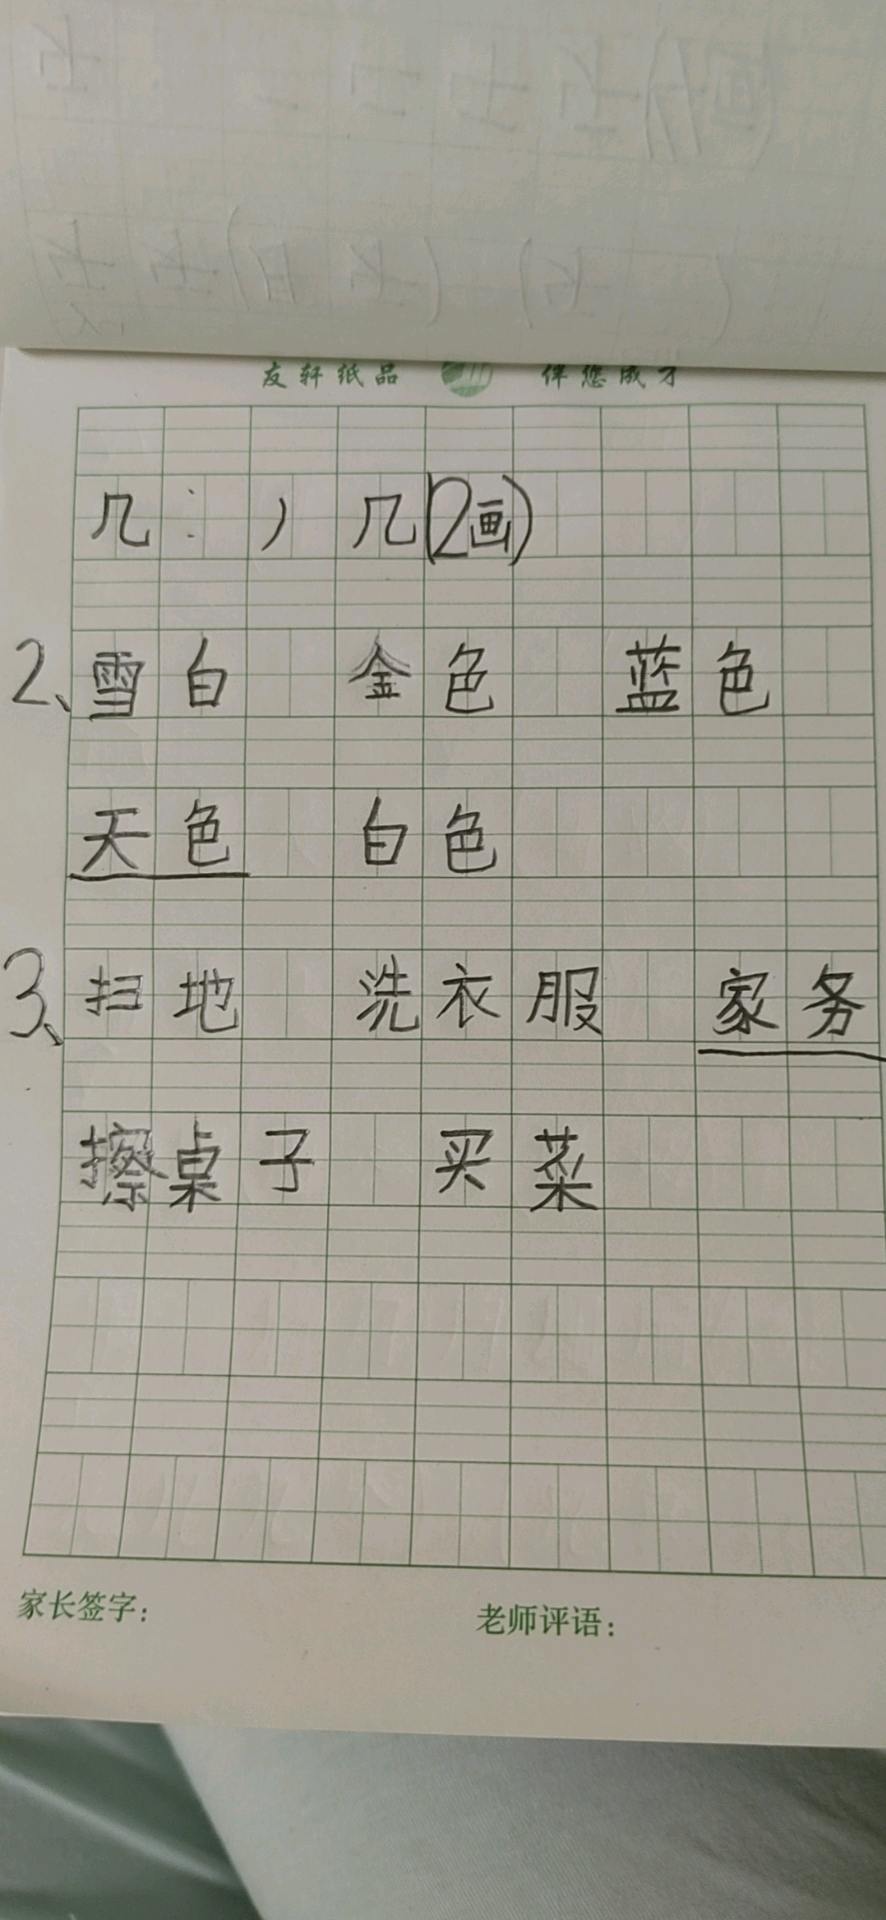 友轩纸品 伴您成才
几：丿几(2画)
2、雪白 金色 蓝色
天色 白色
3、扫地 洗衣服 家务
擦桌子 买菜
家长签字： 老师评语：